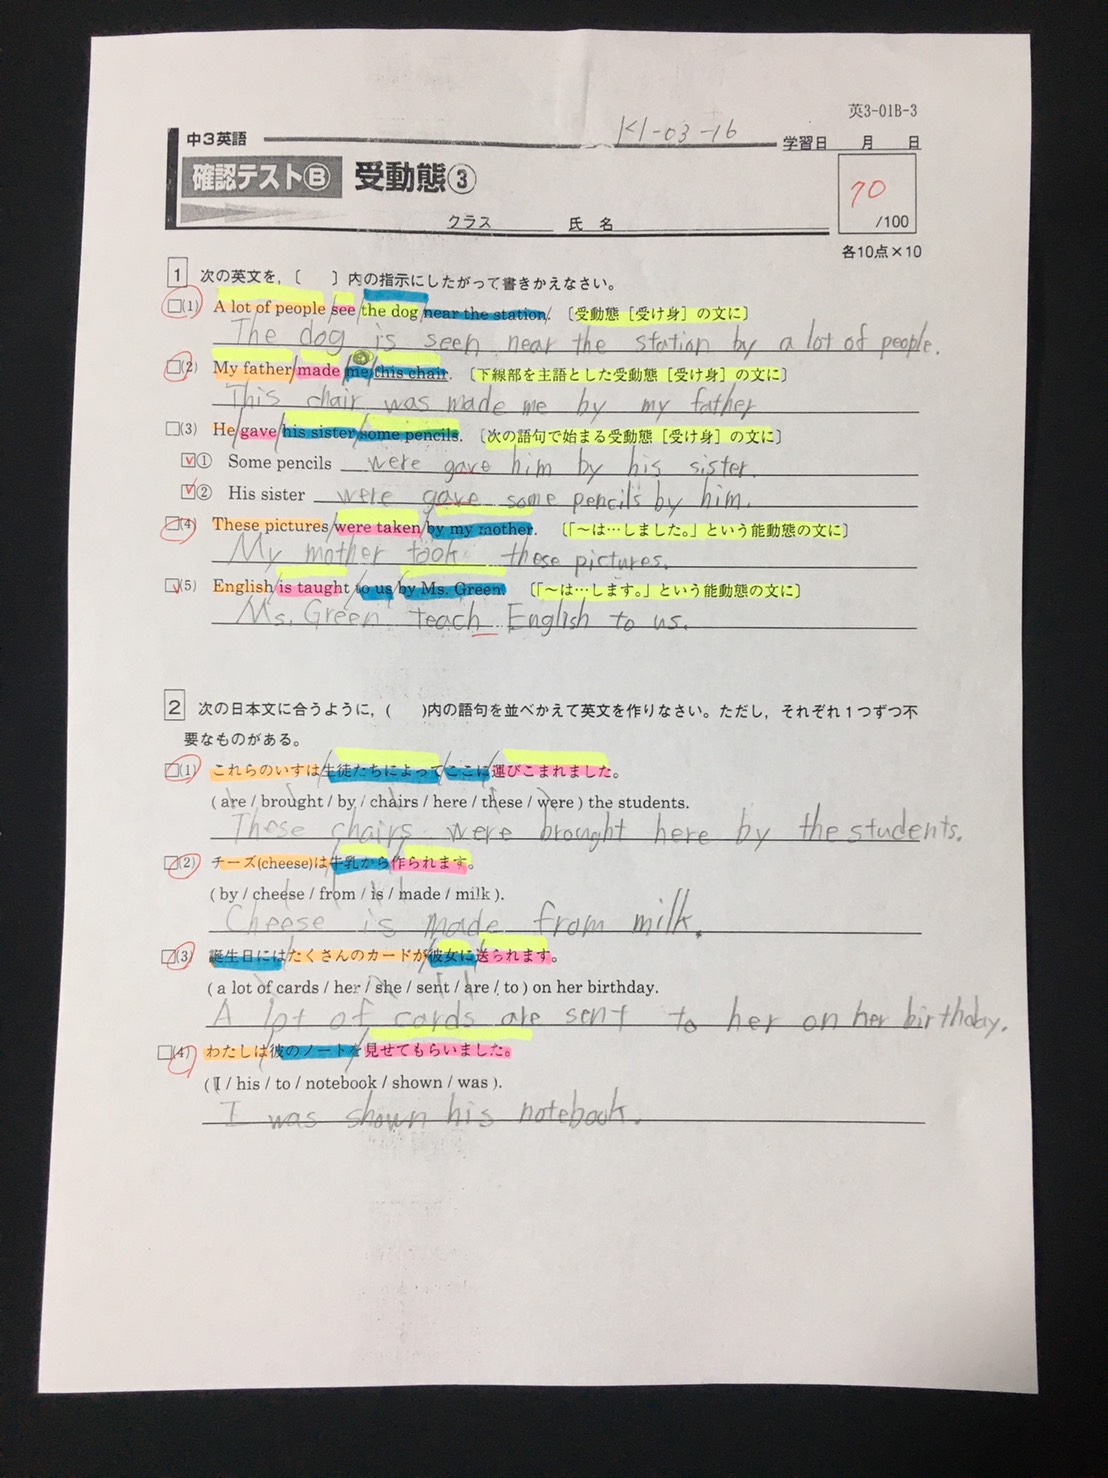 英3-01B-3
K1-03-16
中3英語
学習日 月 日
確認テストⒷ 受動態③
70
/100
クラス 氏 名
各10点×10
1 次の英文を,〔 〕内の指示にしたがって書きかえなさい。
□(1) A lot of people see the dog near the station. 〔受動態［受け身］の文に〕
The dog is seen near the station by a lot of people.
□(2) My father made me this chair. 〔下線部を主語とした受動態［受け身］の文に〕
This chair was made me by my father
□(3) He gave his sister some pencils. 〔次の語句で始まる受動態［受け身］の文に〕
□① Some pencils were gave him by his sister.
□② His sister were gave some pencils by him.
□(4) These pictures were taken by my mother. 〔「～は…しました。」という能動態の文に〕
My mother took these pictures.
□(5) English is taught to us by Ms. Green. 〔「～は…します。」という能動態の文に〕
Ms. Green teach English to us.
2 次の日本文に合うように,( )内の語句を並べかえて英文を作りなさい。ただし,それぞれ1つずつ不
要なものがある。
□(1) これらのいすは生徒たちによってここに運びこまれました。
( are / brought / by / chairs / here / these / were ) the students.
These chairs were brought here by the students.
□(2) チーズ(cheese)は牛乳から作られます。
( by / cheese / from / is / made / milk ).
Cheese is made from milk.
□(3) 誕生日にはたくさんのカードが彼女に送られます。
( a lot of cards / her / she / sent / are / to ) on her birthday.
A lot of cards are sent to her on her birthday.
□(4) わたしは彼のノートを見せてもらいました。
( I / his / to / notebook / shown / was ).
I was shown his notebook.